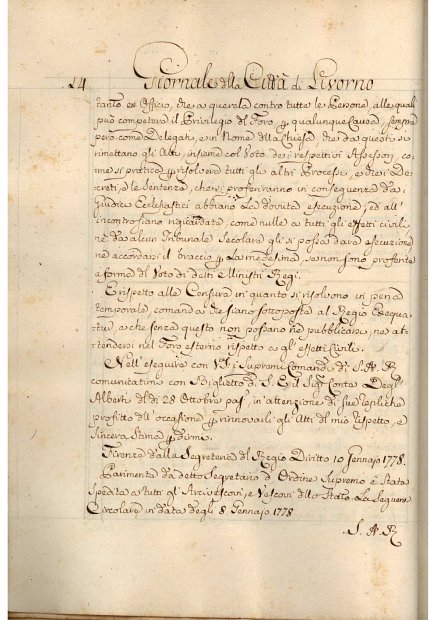 14 Giornale della Città di Livorno
tanto ex Officio, che a querela contro tutte le Persone, alle quali
può competere il Privilegio del Foro, p qualunque Causa, sempre
però come Delegati, e in Nome della Chiesa, che da questi si
rimettano gli Atti, insieme col Voto dei respettivi Assessori, co-
me si pratica p risolvere tutti gli altri Processi, e che i De-
creti, e le Sentenze, che si proferiranno in conseguenza da
Giudici Ecclesiastici abbiano la dovuta esecuzione; ed all'
incontro siano riguardate, come nulle a tutti gli effetti civili
ne da alcun Tribunale Secolare gli si possa dare esecuzione
ne accordarsi il braccio p la medesima, se non sono proferite
a forma del Voto di detti Ministri Regi.
E rispetto alle Censure in quanto si risolvono in pena
temporale, comanda che siano sottoposte al Regio Exequa-
tur, e che senza questo non possano ne pubblicarsi, ne at-
tendersi nel Foro esterno rispetto a gl'effetti Civili.
Nell'eseguire con i Supremi Comandi di S. A. R.
comunicatimi con Biglietto di S. E. il Sigr Conte Degl'
Alberti del dì 28 Ottobre pas, in attenzione di sue repliche
profitto dell'occasione p rinnovarli gli Atti del mio rispetto, e
sincera stima p
Firenze dalla Segreteria del Regio Diritto 10 Gennajo 1778.
Parimente da detto Segretario d'Ordine Supremo è stata
spedita a tutti gl'Arcivescovi, e Vescovi dello Stato La seguente
Circolare in data degli 8 Gennajo 1778
S. A. R